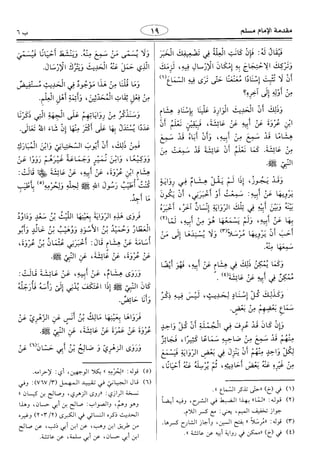 مقدمة الإمام مسلم
١٩
ب ٦
فَيُقَالُ لَهُ: فَإِنْ كَانَتِ الْعِلَّةُ فِي تَضْعِيفِكَ الْخَبَرَ
وَتَرْكِكَ الِاحْتِجَاجَ بِهِ إِمْكَانَ الْإِرْسَالِ فِيهِ، لَزِمَكَ
أَنْ لَا تُثْبِتَ إِسْنَادًا مُعَنْعَنًا حَتَّى تَرَى فِيهِ السَّمَاعَ(١)
مِنْ أَوَّلِهِ إِلَى آخِرِهِ؟
وَذَلِكَ أَنَّ الْحَدِيثَ الْوَارِدَ عَلَيْنَا بِإِسْنَادِ هِشَامِ
ابْنِ عُرْوَةَ عَنْ أَبِيهِ عَنْ عَائِشَةَ، فَبِيَقِينٍ نَعْلَمُ أَنَّ
هِشَامًا قَدْ سَمِعَ مِنْ أَبِيهِ، وَأَنَّ أَبَاهُ قَدْ سَمِعَ
مِنْ عَائِشَةَ. كَمَا نَعْلَمُ أَنَّ عَائِشَةَ قَدْ سَمِعَتْ مِنَ
النَّبِيِّ ﷺ.
وَقَدْ يَجُوزُ، إِذَا لَمْ يَقُلْ هِشَامٌ فِي رِوَايَةٍ
يَرْوِيهَا عَنْ أَبِيهِ: سَمِعْتُ أَوْ أَخْبَرَنِي، أَنْ يَكُونَ
بَيْنَهُ وَبَيْنَ أَبِيهِ فِي تِلْكَ الرِّوَايَةِ إِنْسَانٌ آخَرُ، أَخْبَرَهُ
بِهَا عَنْ أَبِيهِ، وَلَمْ يَسْمَعْهَا هُوَ مِنْ أَبِيهِ، لَمَّا(٢)
أَحَبَّ أَنْ يَرْوِيَهَا مُرْسَلًا(٣)، وَلَا يُسْنِدَهَا إِلَى مَنْ
سَمِعَهَا مِنْهُ.
وَكَمَا يُمْكِنُ ذَلِكَ فِي هِشَامٍ عَنْ أَبِيهِ، فَهُوَ أَيْضًا
مُمْكِنٌ فِي أَبِيهِ عَنْ عَائِشَةَ(٤).
وَكَذَلِكَ كُلُّ إِسْنَادٍ لِحَدِيثٍ، لَيْسَ فِيهِ ذِكْرُ
سَمَاعِ بَعْضِهِمْ مِنْ بَعْضٍ.
وَإِنْ كَانَ قَدْ عُرِفَ فِي الْجُمْلَةِ أَنَّ كُلَّ وَاحِدٍ
مِنْهُمْ قَدْ سَمِعَ مِنْ صَاحِبِهِ سَمَاعًا كَثِيرًا، فَجَائِزٌ
لِكُلِّ وَاحِدٍ مِنْهُمْ أَنْ يَنْزِلَ فِي بَعْضِ الرِّوَايَةِ فَيَسْمَعَ
مِنْ غَيْرِهِ عَنْهُ بَعْضَ أَحَادِيثِهِ، ثُمَّ يُرْسِلَهُ عَنْهُ أَحْيَانًا،
وَلَا يُسَمِّيَ مَنْ سَمِعَ مِنْهُ. وَيَنْشَطَ أَحْيَانًا فَيُسَمِّيَ
الَّذِي حَمَلَ عَنْهُ الْحَدِيثَ وَيَتْرُكَ الْإِرْسَالَ.
وَمَا قُلْنَا مِنْ هَذَا مَوْجُودٌ فِي الْحَدِيثِ مُسْتَفِيضٌ
مِنْ فِعْلِ ثِقَاتِ الْمُحَدِّثِينَ، وَأَئِمَّةِ أَهْلِ الْعِلْمِ.
وَسَنَذْكُرُ مِنْ رِوَايَاتِهِمْ عَلَى الْجِهَةِ الَّتِي ذَكَرْنَا
عَدَدًا يُسْتَدَلُّ بِهَا عَلَى أَكْثَرَ مِنْهَا إِنْ شَاءَ اللهُ تَعَالَى.
فَمِنْ ذَلِكَ، أَنَّ أَيُّوبَ السَّخْتِيَانِيَّ وَابْنَ الْمُبَارَكِ
وَوَكِيعًا، وَابْنَ نُمَيْرٍ وَجَمَاعَةً غَيْرَهُمْ رَوَوْا عَنْ
هِشَامِ بْنِ عُرْوَةَ، عَنْ أَبِيهِ، عَنْ عَائِشَةَ ﵂ قَالَتْ:
كُنْتُ أُطَيِّبُ رَسُولَ اللهِ ﷺ لِحِلِّهِ وَلِحِرْمِهِ(٥) بِأَطْيَبِ
مَا أَجِدُ.
فَرَوَى هَذِهِ الرِّوَايَةَ بِعَيْنِهَا اللَّيْثُ بْنُ سَعْدٍ وَدَاوُدُ
الْعَطَّارُ وَحُمَيْدُ بْنُ الْأَسْوَدِ وَوُهَيْبُ بْنُ خَالِدٍ وَأَبُو
أُسَامَةَ عَنْ هِشَامٍ قَالَ: أَخْبَرَنِي عُثْمَانُ بْنُ عُرْوَةَ،
عَنْ عُرْوَةَ، عَنْ عَائِشَةَ، عَنِ النَّبِيِّ ﷺ.
وَرَوَى هِشَامٌ، عَنْ أَبِيهِ، عَنْ عَائِشَةَ قَالَتْ:
كَانَ النَّبِيُّ ﷺ إِذَا اعْتَكَفَ يُدْنِي إِلَيَّ رَأْسَهُ فَأُرَجِّلُهُ
وَأَنَا حَائِضٌ.
فَرَوَاهَا بِعَيْنِهَا مَالِكُ بْنُ أَنَسٍ عَنِ الزُّهْرِيِّ عَنْ
عُرْوَةَ عَنْ عَمْرَةَ عَنْ عَائِشَةَ، عَنِ النَّبِيِّ ﷺ.
وَرَوَى الزُّهْرِيُّ وَ صَالِحُ بْنُ أَبِي حَسَّانَ(٦) عَنْ
(١) في (خ) «حتى تذكر السَّمَاع».
(٢) قوله: «لمّا» بهذا الضبط في الشرح، وفيه أيضاً
جواز تخفيف الميم، يعني: مع كسر اللام.
(٣) قوله: «مُرسلاً» بفتح السين، وأجاز الشارح كسرها.
(٤) في (خ) «ممكن في رواية أبيه عن عائشة».
(٥) قوله: «لِحُرْمِهِ» بكلا الوجهين، أي: لإحرامه.
(٦) قال الجياني في تقييد المهمل (٣/ ٧٦٧): وفي
نسخة الرازي: فروى الزهري، وصالح بن كيسان،
وهو وهمٌ، والصواب: صالح بن أبي حسان، وهذا
الحديث ذكره النسائي في الكبرى (٢/ ٢٠٣) وغيره
من طريق ابن وهب، عن ابن أبي ذئب، عن صالح
ابن أبي حسان، عن أبي سلمة، عن عائشة.